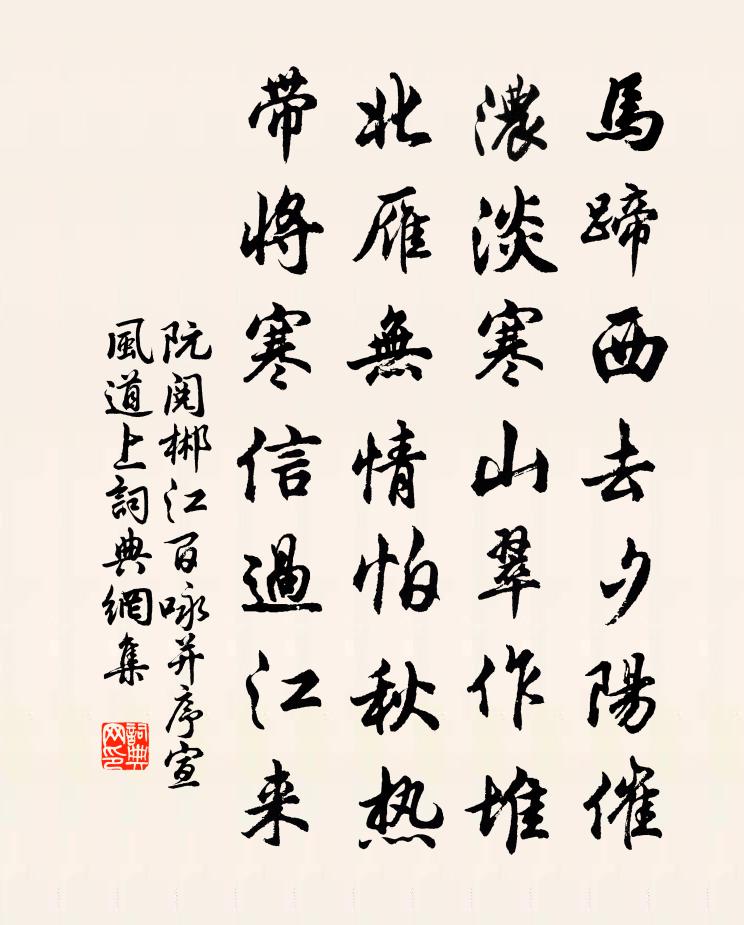 馬蹄西去夕陽催
濃淡寒山翠作堆
北雁無情怕秋热
带将寒信過江来
阮閱郴江百咏并序宣
風道上詞典網集
詞典網印